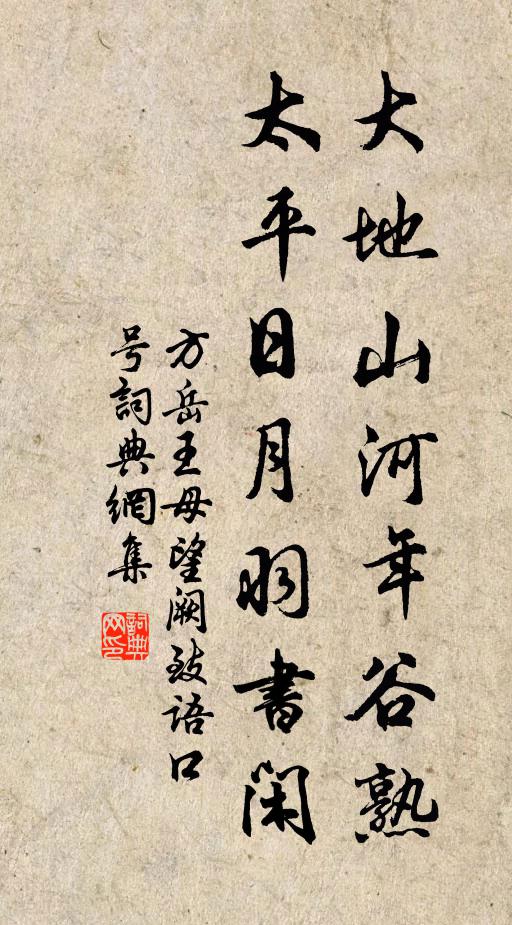 大地山河年谷熟
太平日月羽書閑
方岳王母望阙致語口
号詞典網集
詞典
网印